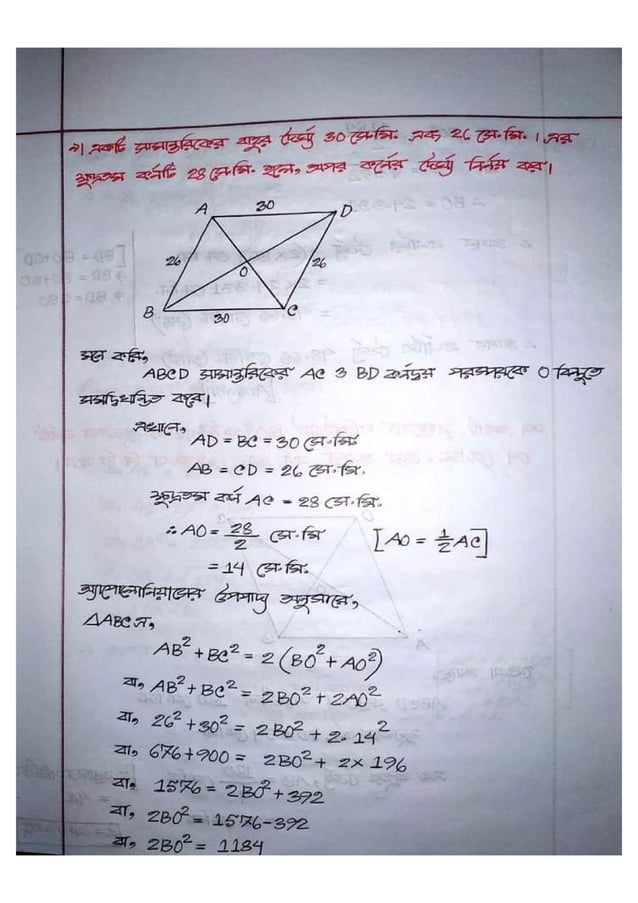 ১। একটি সামান্তরিকের বাহুর দৈর্ঘ্য 30 সে.মি. এবং 26 সে.মি.। এর
ক্ষুদ্রতম কর্ণটি 28 সে.মি. হলে, অপর কর্ণের দৈর্ঘ্য নির্ণয় কর।
A 30 D
26 O 26
B 30 C
মনে করি,
ABCD সামান্তরিকের AC ও BD কর্ণদ্বয় পরস্পরকে O বিন্দুতে
সমদ্বিখন্ডিত করে।
এখানে,
AD = BC = 30 সে.মি
AB = CD = 26 সে.মি.
ক্ষুদ্রতম কর্ণ AC = 28 সে.মি.
∴ AO = 28/2 সে.মি [AO = 1/2 AC]
= 14 সে.মি.
অ্যাপোলোনিয়াসের উপপাদ্য অনুসারে,
△ABC এ,
AB² + BC² = 2 (BO² + AO²)
বা, AB² + BC² = 2BO² + 2AO²
বা, 26² + 30² = 2BO² + 2. 14²
বা, 676 + 900 = 2BO² + 2 × 196
বা, 1576 = 2BO² + 392
বা, 2BO² = 1576 - 392
বা, 2BO² = 1184